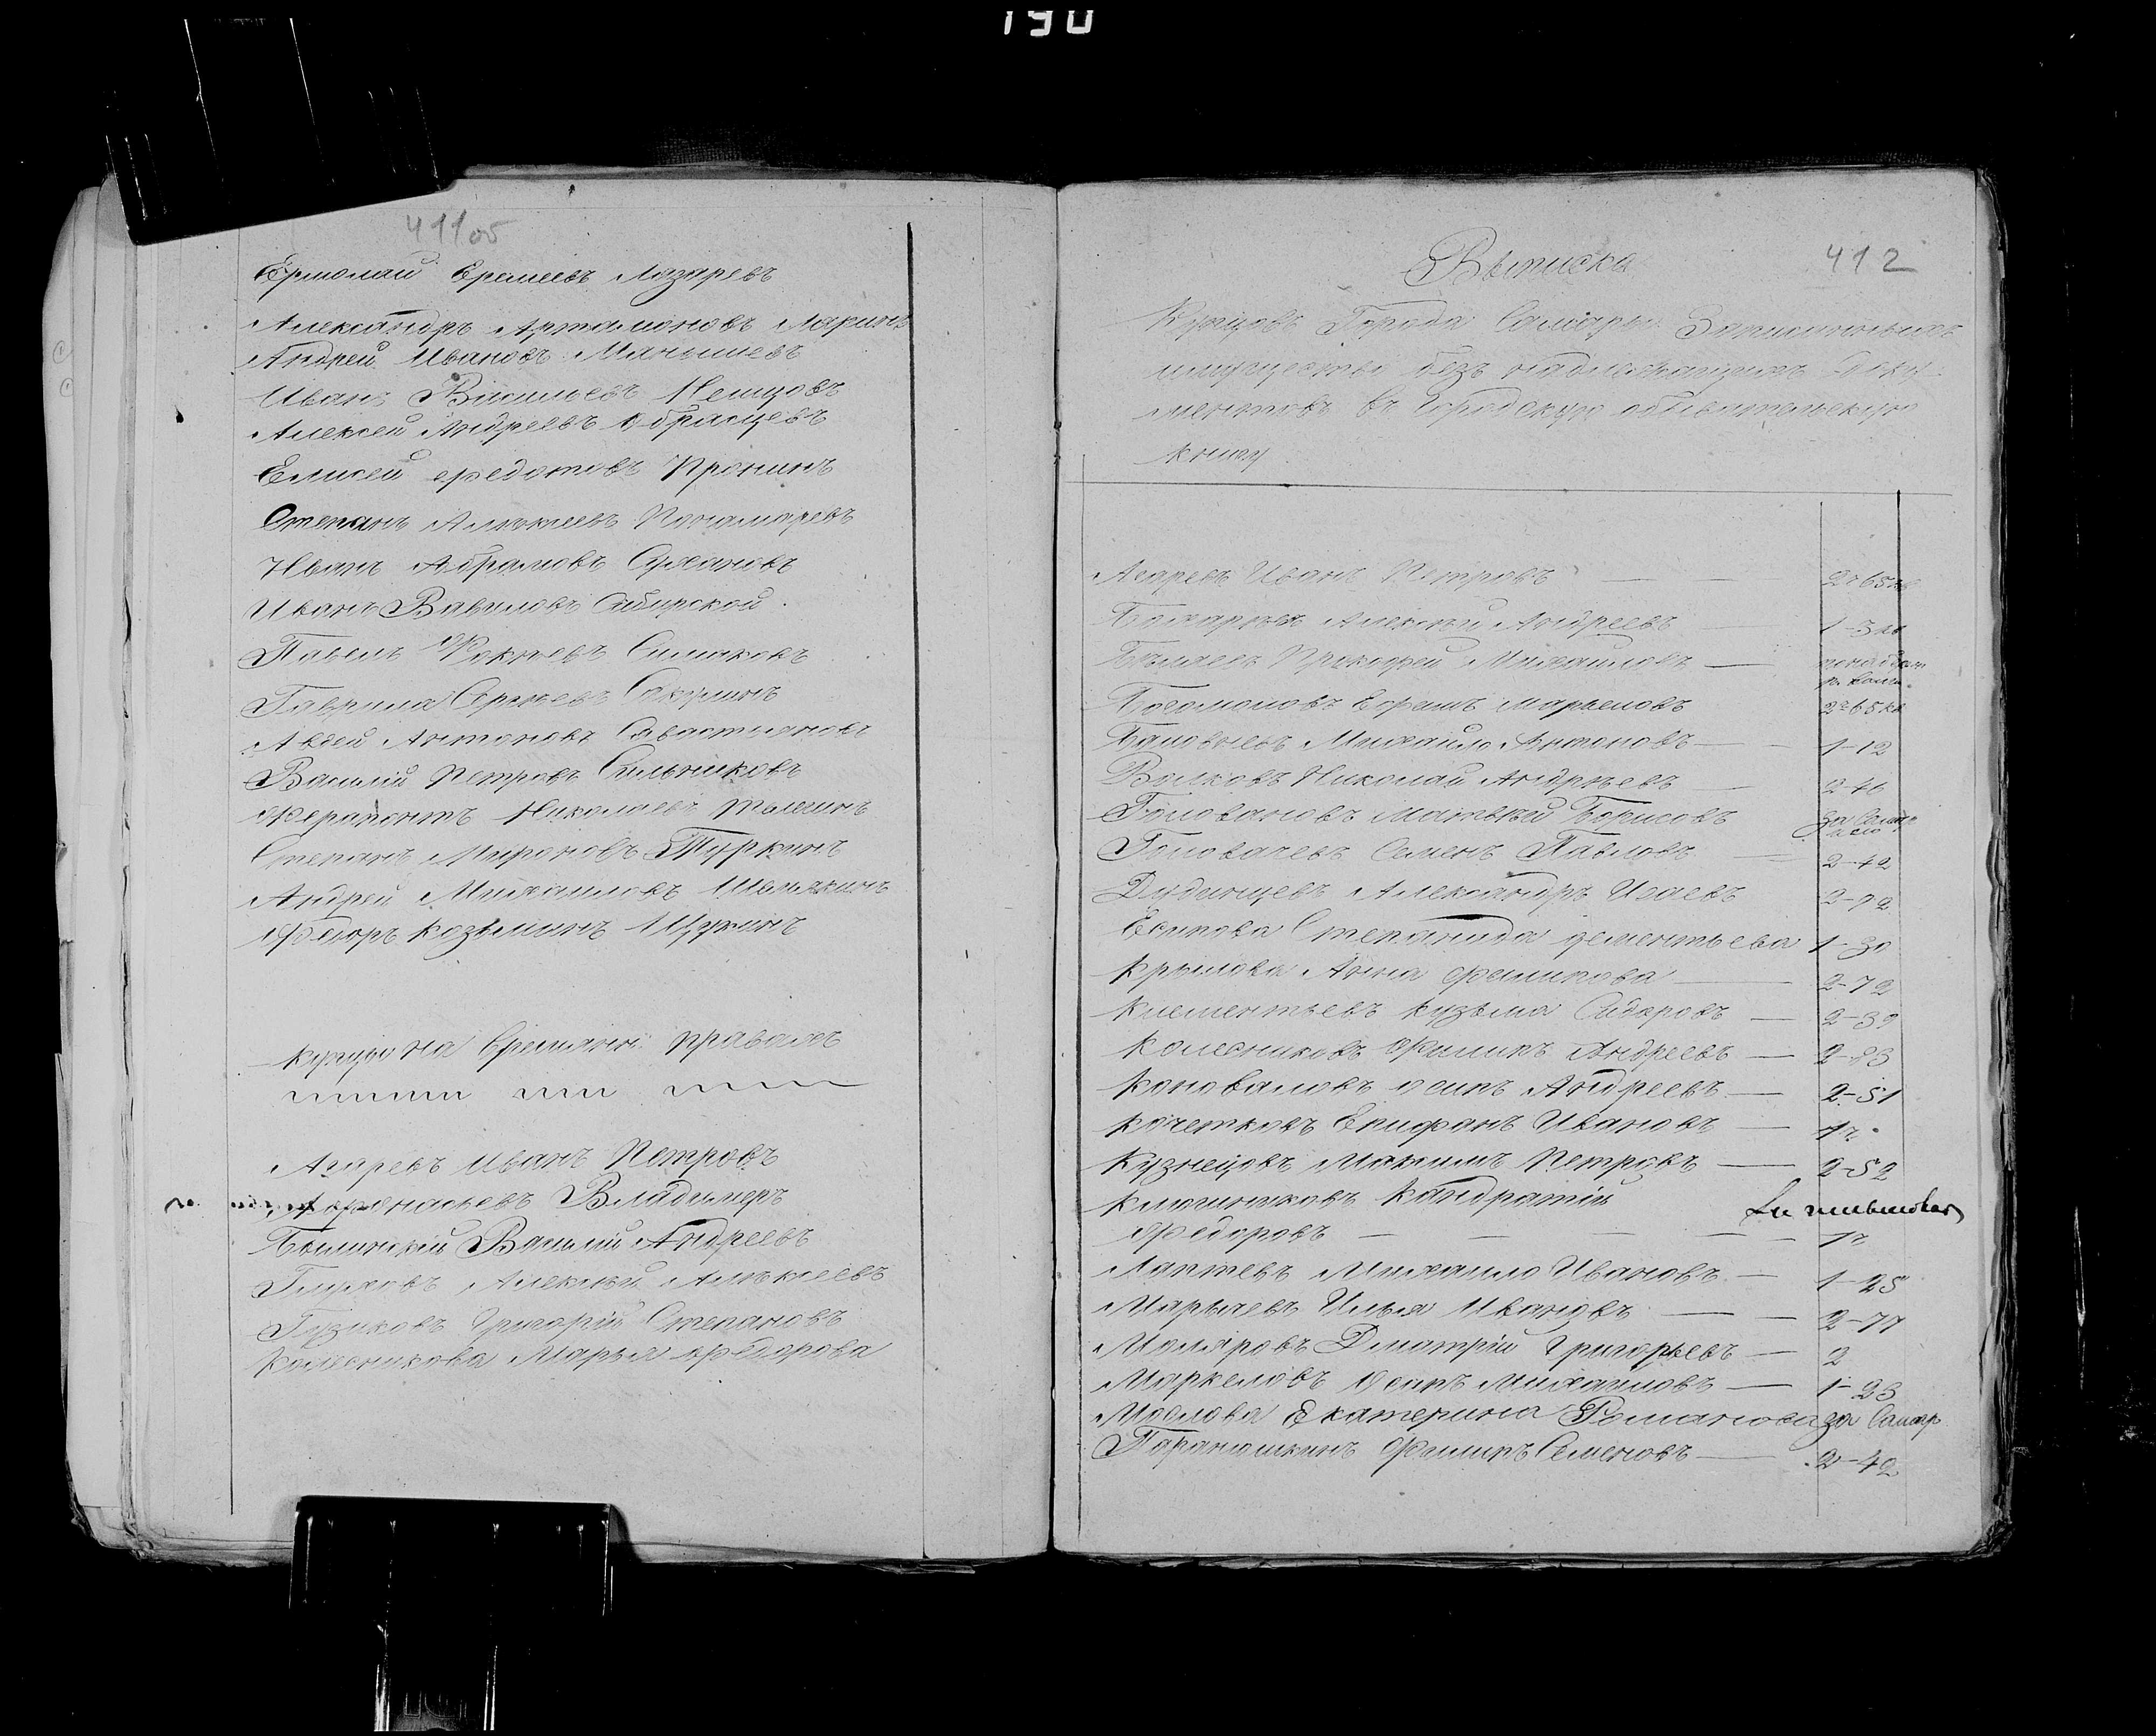 190
411 об
Ермолай Еремеевъ Лазаревъ
Александръ Артамоновъ Ларинъ
Андрей Ивановъ Манышевъ
Иванъ Васильевъ Немцовъ
Алексей Андреевъ Образцевъ
Елисей Федотовъ Пронинъ
Степанъ Алѣксеевъ Понамаревъ
Иванъ Абрамовъ Сухановъ
Иванъ Вавиловъ Сибирской
Павелъ Фокѣевъ Симаковъ
Гаврила Сергѣевъ Сокулинъ
Авдей Антоновъ Савастьяновъ
Василий Петровъ Сильниковъ
Ферапонтъ Николаевъ Телегинъ
Степанъ Мироновъ Туркинъ
Андрей Михайловъ
Федоръ Козьминъ Щукинъ
Купцы на времянн правахъ
Агаревъ Иванъ Петровъ
Афонасьевъ Владимеръ
Былинскій Василий Андреевъ
Глуховъ Алексѣй Алѣксеевъ
Гузиковъ Григорій Степановъ
Колесникова Марья Федорова
Выписка
412
Купцовъ Города Самары
имущество безъ надлежащихъ Доку
ментовъ въ Городскую обывательскую
книгу
Агаревъ Иванъ Петровъ 2 г 65
Алексѣй Андреевъ 1-3
Бѣляевъ Прокофей Михайловъ
Богомоловъ Ефемъ Маркеловъ 2 г 65 кв
Михайло Антоновъ 1-12
Волковъ Николай Андрѣевъ 2-46
Головановъ Матвѣй Борисовъ за Сама
Головачевъ Семенъ Павловъ 2-42
Дудинцевъ Александръ Исаевъ 2-72
Есипова Степанида Дементьева 1-30
Крылова Анна Филипова 2-72
Клементьевъ Кузьма Сидоровъ 2-39
Колесниковъ Филипъ Андреевъ 2-83
Коноваловъ Осипъ Андреевъ 2-51
Кочетковъ Епифанъ Ивановъ 1 г
Кузнецовъ Максимъ Петровъ 2-52
Ключниковъ Кандратій
Федоровъ 1 г
Лаптевъ Михайло Ивановъ 1-25
Марычевъ Илья Ивановъ 2-77
Маляровъ Дмитрій Григорьевъ 2
Маркеловъ Осипъ Михайловъ 1-23
Маслова Екатерина Романова за Самар
Паранюшкинъ Филипъ Семеновъ 2-42